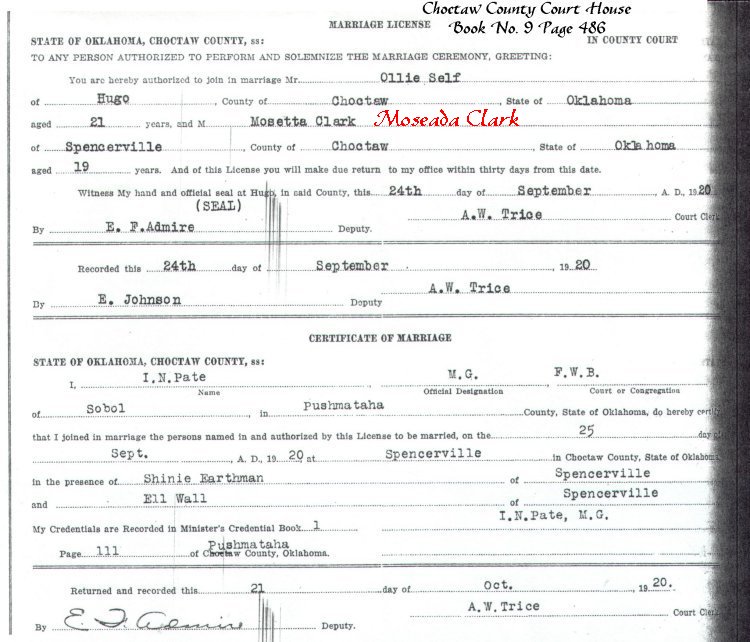 Choctaw County Court House
MARRIAGE LICENSE Book No. 9 Page 486
STATE OF OKLAHOMA, CHOCTAW COUNTY, ss: IN COUNTY COURT
TO ANY PERSON AUTHORIZED TO PERFORM AND SOLEMNIZE THE MARRIAGE CEREMONY, GREETING:
You are hereby authorized to join in marriage Mr. Ollie Self
of Hugo, County of Choctaw, State of Oklahoma
aged 21 years, and M Mosetta Clark Moseada Clark
of Spencerville, County of Choctaw, State of Oklahoma
aged 19 years. And of this License you will make due return to my office within thirty days from this date.
Witness My hand and official seal at Hugo, in said County, this 24th day of September A. D., 1920
(SEAL) A.W. Trice Court Clerk
By E. F.Admire Deputy.
Recorded this 24th day of September 1920
A.W. Trice
By E. Johnson Deputy
CERTIFICATE OF MARRIAGE
STATE OF OKLAHOMA, CHOCTAW COUNTY, ss:
I, I.N.Pate M.G. F.W.B.
Name Official Designation Court or Congregation
of Sobol in Pushmataha County, State of Oklahoma, do hereby certify
that I joined in marriage the persons named in and authorized by this License to be married, on the 25 day of
Sept. A. D., 1920, at Spencerville in Choctaw County, State of Oklahoma
in the presence of Shinie Earthman of Spencerville
and Ell Wall of Spencerville
I.N.Pate, M.G.
My Credentials are Recorded in Minister's Credential Book 1
Pushmataha
Page 111 of Choctaw County, Oklahoma.
Returned and recorded this 21 day of Oct. 1920.
A.W.Trice Court Clerk
By E. F. Admire Deputy.